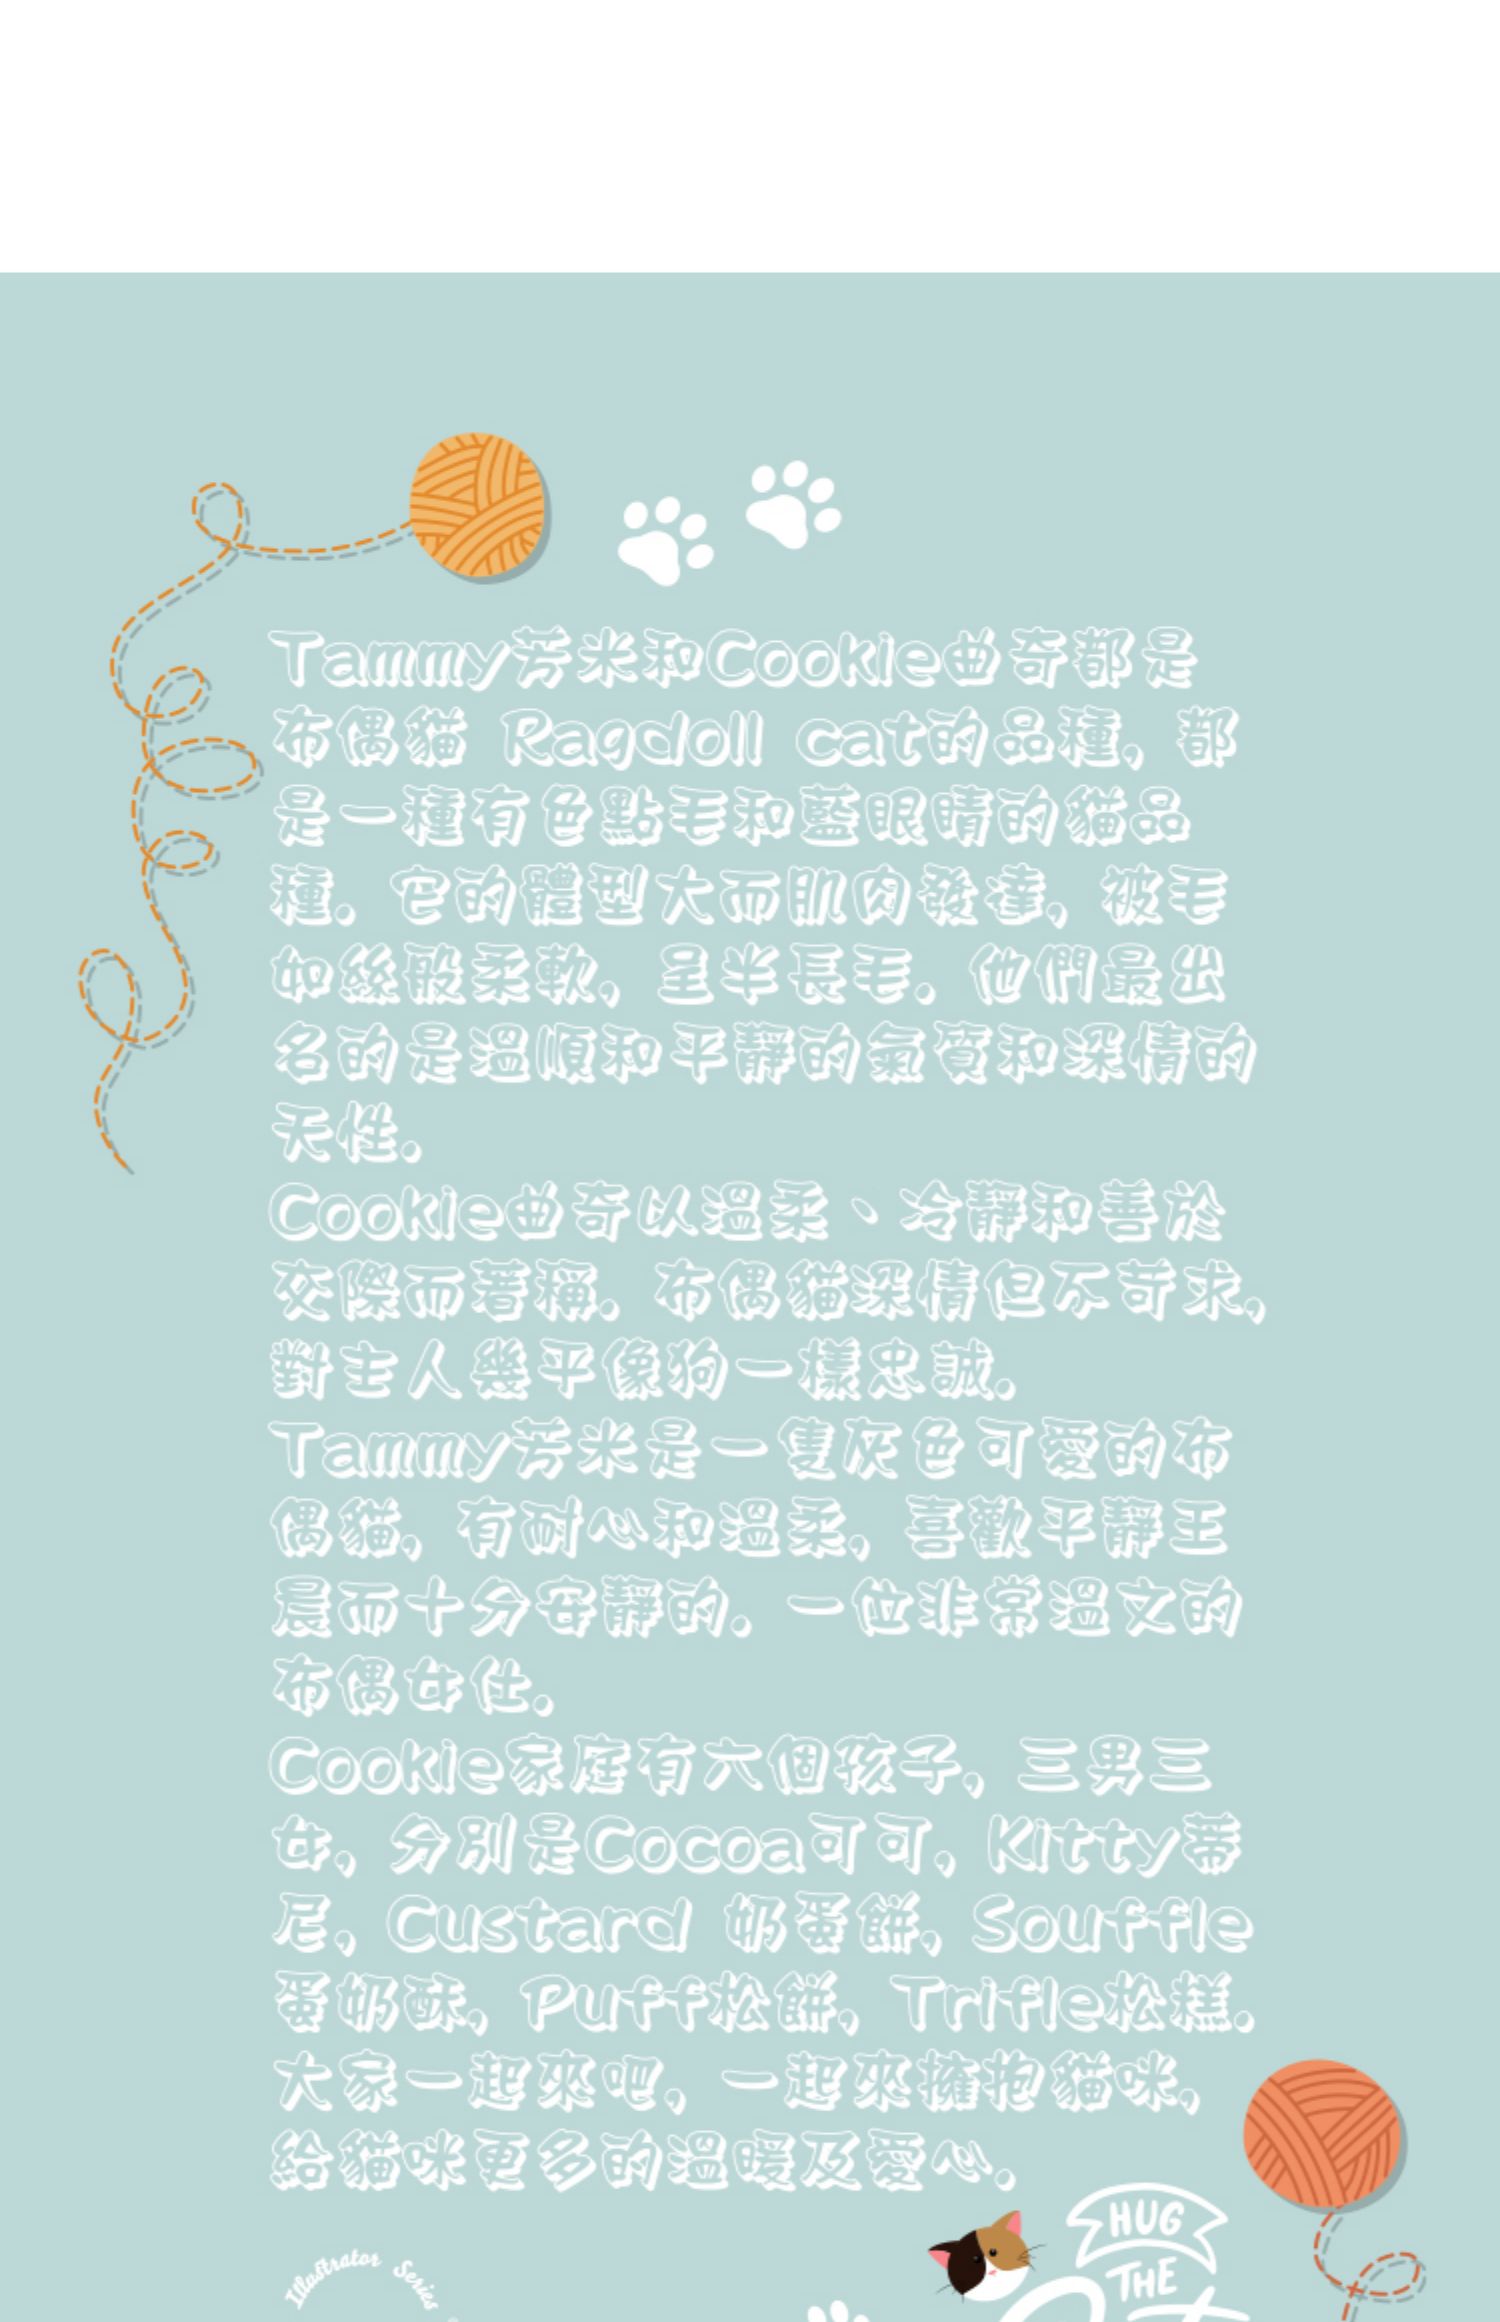 Tammy芳米和Cookie曲奇都是
布偶貓 Ragdoll cat的品種, 都
是一種有色點毛和藍眼睛的貓品
種. 它的體型大而肌肉發達, 被毛
如絲般柔軟, 呈半長毛. 他們最出
名的是溫順和平靜的氣質和深情的
天性.
Cookie曲奇以溫柔、冷靜和善於
交際而著稱. 布偶貓深情但不苛求,
對主人幾乎像狗一樣忠誠.
Tammy芳米是一隻灰色可愛的布
偶貓, 有耐心和溫柔, 喜歡平靜王
晨而十分安靜的. 一位非常溫文的
布偶女仕.
Cookie家庭有六個孩子, 三男三
女, 分別是Cocoa可可, Kitty蒂
尼, Custard 奶蛋餅, Souffle
蛋奶酥, Puff松餅, Trifle松糕.
大家一起來吧, 一起來擁抱貓咪,
給貓咪更多的溫暖及愛心.
HUG
THE
Illustrator Series